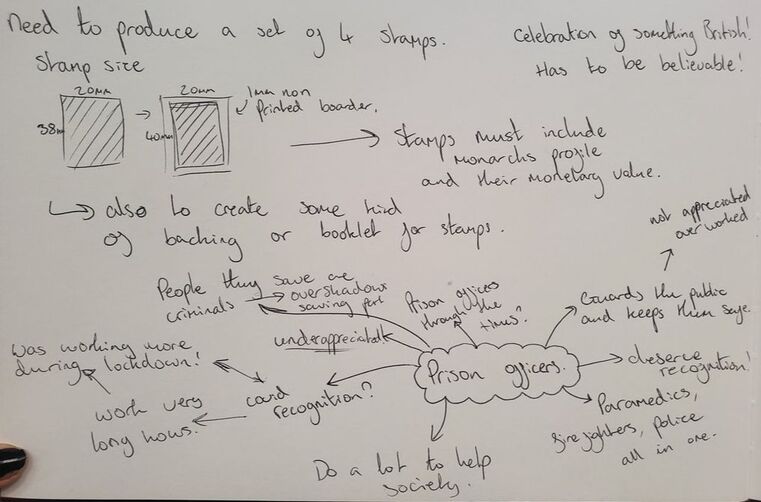 Need to produce a set of 4 stamps.
Celebration of something British!
Has to be believable!
Stamp size
20mm
38m
20mm
40mm
1mm non
printed boarder.
Stamps must include
monarchs profile
and their monetary value.
also to create some kind
of backing or booklet for stamps.
not appreciated
over worked
People they save are
criminals
overshadows
saving part
Prison officers
through the
times?
Guards the public
and keeps them safe.
underappreciated!
was working more
during lockdown!
Prison officers.
deserve
recognition!
covid
recognition?
work very
long hours.
Paramedics,
firefighters, police
all in one.
Do a lot to help
society.